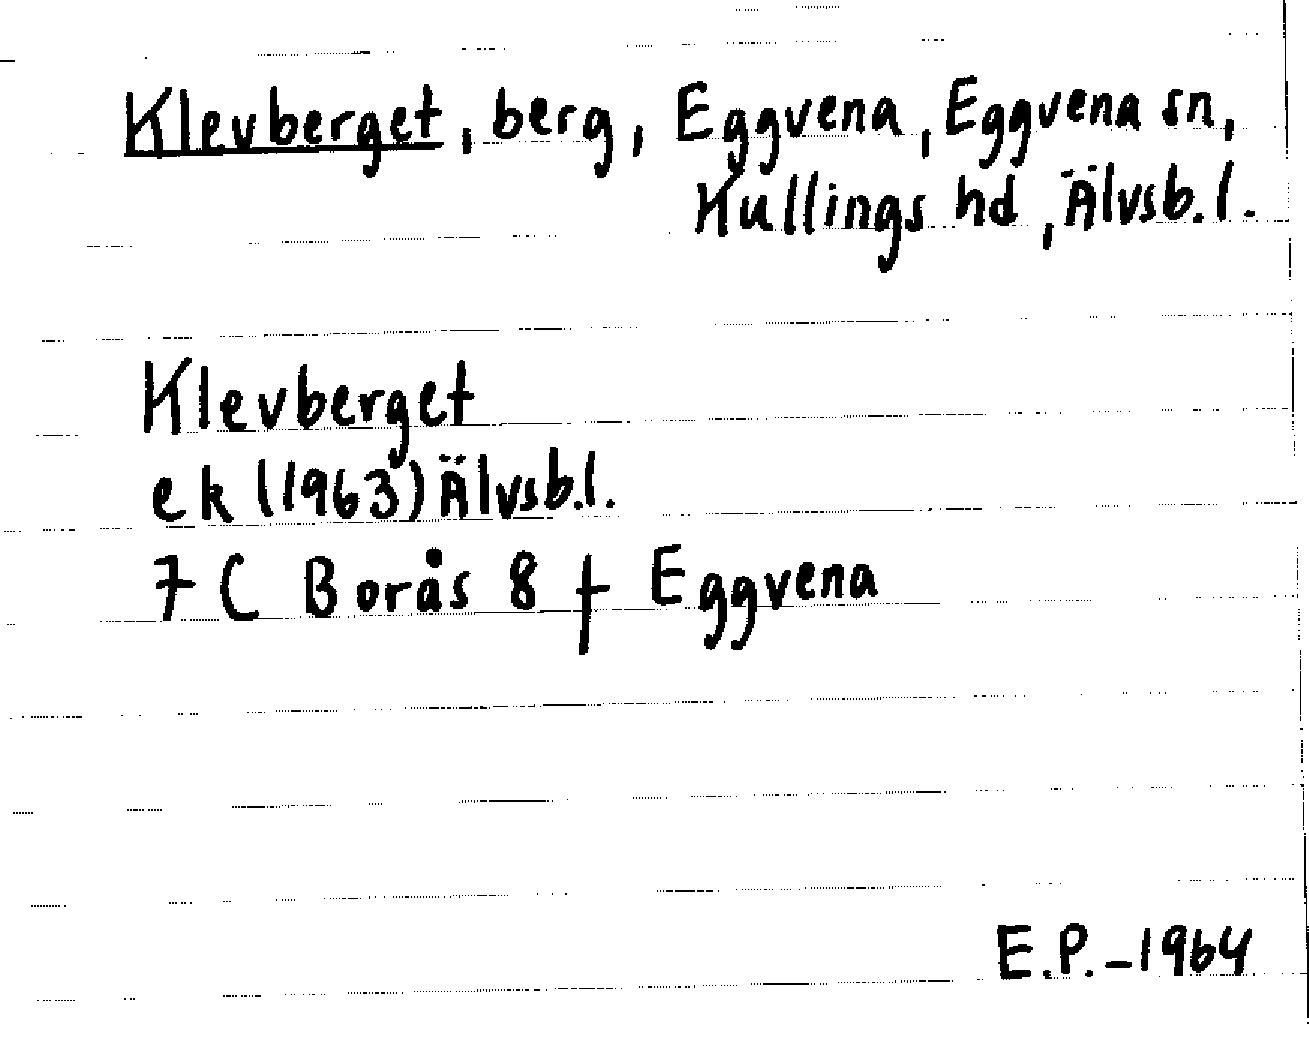 Klevberget, berg, Eggvena, Eggvena sn,
Kullings hd, Älvsb.l.
Klevberget
ek (1963) Älvsb.l.
7 C Borås 8 f Eggvena
E.P. - 1964